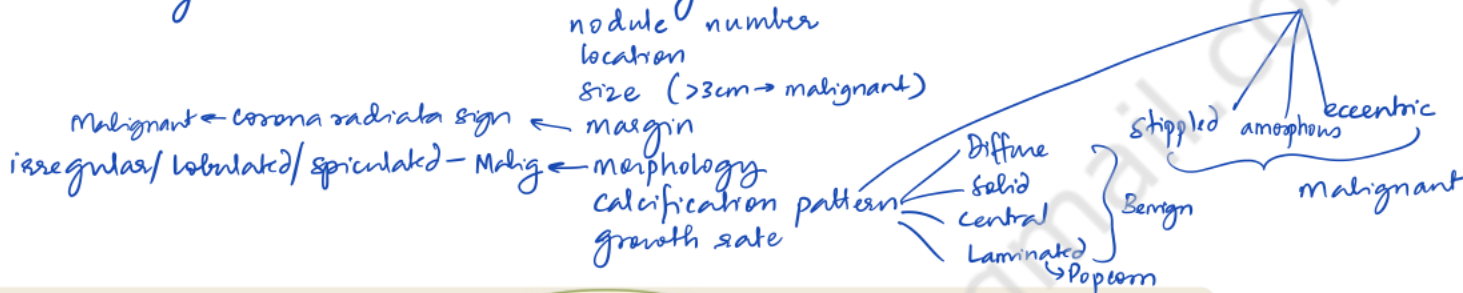 nodule number
location
size (>3cm → malignant)
Malignant ← corona radiata sign ← margin
irregular/ lobulated/ spiculated - Malig ← morphology
calcification pattern
growth rate
Diffuse
Solid
Central
Laminated
↳ Popcorn
Benign
stippled amorphous eccentric
malignant
gmail.co